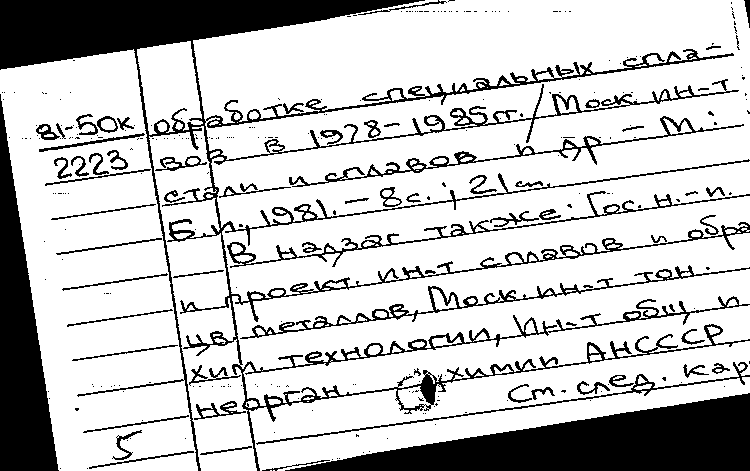 81-50к обработке специальных спла-
2223 вов в 1978-1985гг. / Моск. ин-т
стали и сплавов и др. - М.:
Б.и., 1981. - 8с.; 21см.
В надзаг также: Гос. н.-и.
и проект. ин-т сплавов и обра
цв. металлов, Моск. ин-т тон.
хим. технологии, Ин-т общ и
неорган. химии АНСССР,
5 См. след. кар